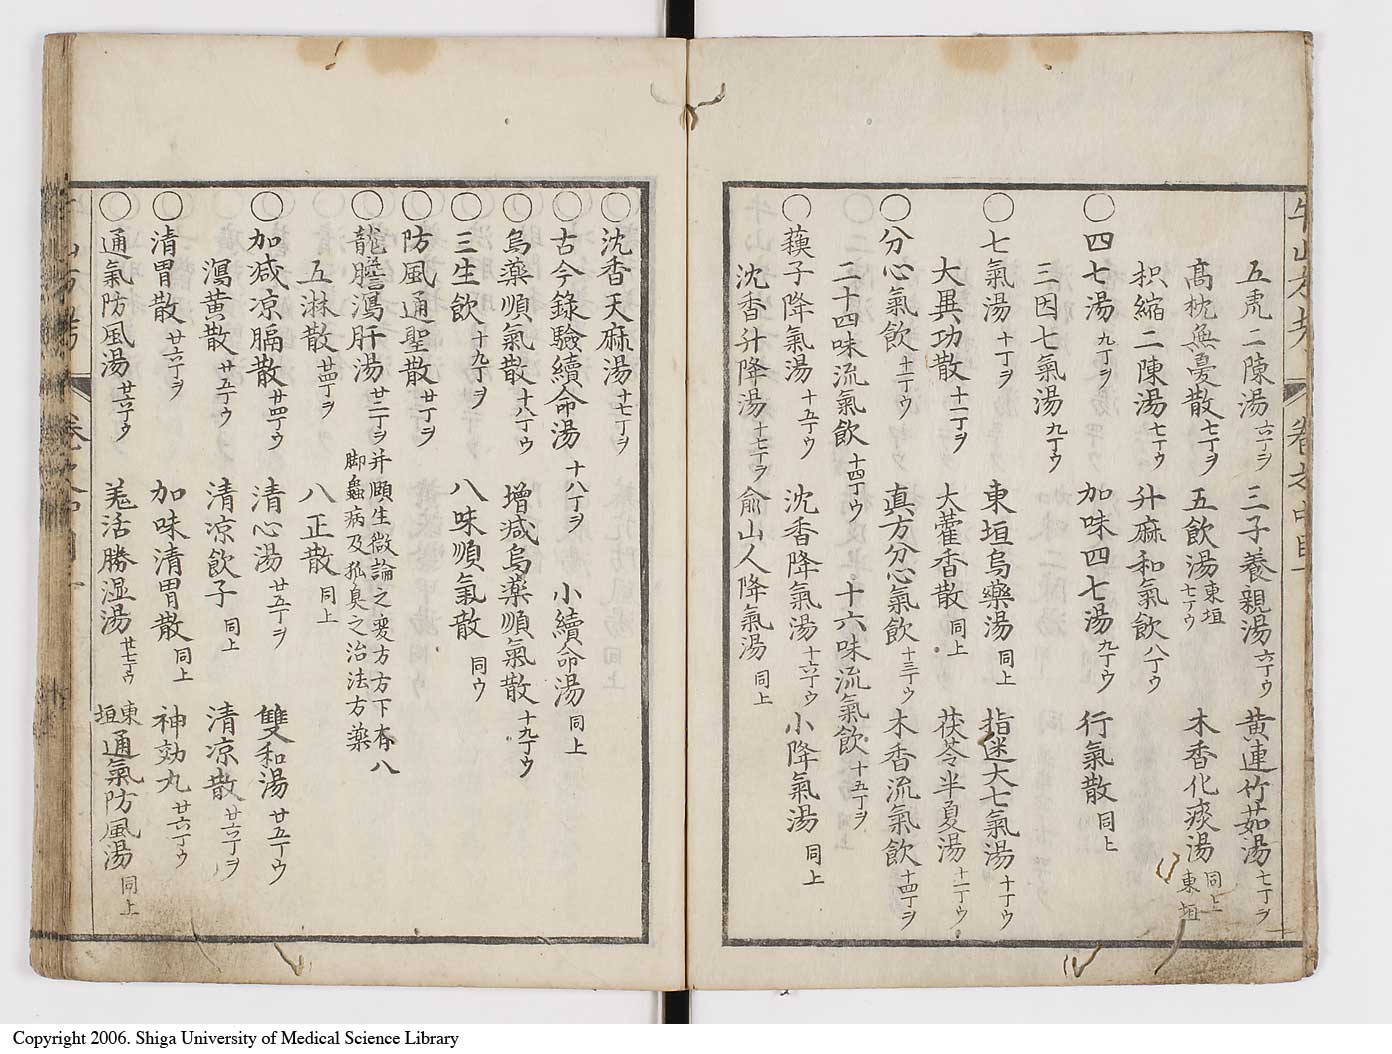 五虎二陳湯 六丁ヲ 三子養親湯 六丁ウ 黄連竹茹湯 七丁ヲ
高枕無憂散 七丁ヲ 五飲湯 東垣 七丁ウ 木香化痰湯 同上 東垣
枳縮二陳湯 七丁ウ 升麻和氣飲 八丁ウ
○四七湯 九丁ヲ 加味四七湯 九丁ウ 行氣散 同上
三因七氣湯 九丁ウ
○七氣湯 十丁ヲ 東垣烏藥湯 同上 指迷大七氣湯 十丁ウ
大異功散 十一丁ヲ 大藿香散 同上 茯苓半夏湯 十一丁ウ
○分心氣飲 十二丁ウ 真方分心氣飲 十三丁ウ 木香流氣飲 十四丁ヲ
二十四味流氣飲 十四丁ウ 十六味流氣飲 十五丁ヲ
○蘓子降氣湯 十五丁ウ 沈香降氣湯 十六丁ウ 小降氣湯 同上
沈香升降湯 十七丁ヲ 俞山人降氣湯 同上
○沈香天麻湯 十七丁ヲ
○古今錄驗續命湯 十八丁ヲ 小續命湯 同上
○烏藥順氣散 十八丁ウ 增減烏藥順氣散 十九丁ウ
○三生飲 十九丁ヲ 八味順氣散 同ウ
○防風通聖散 廿丁ヲ
○龍膽瀉肝湯 廿二丁ヲ 并頤生微論之変方方下有八
脚蟲病及狐臭之治法方藥
五淋散 廿四丁ヲ 八正散 同上
○加減凉膈散 廿四丁ウ 清心湯 廿五丁ヲ 雙和湯 廿五丁ウ
瀉黄散 廿五丁ウ 清凉飲子 同上 清凉散 廿六丁ヲ
○清胃散 廿六丁ヲ 加味清胃散 同上 神効丸 廿六丁ウ
○通氣防風湯 廿六丁ウ 羗活勝湿湯 廿七丁ウ 東垣通氣防風湯 同上
Copyright 2006. Shiga University of Medical Science Library